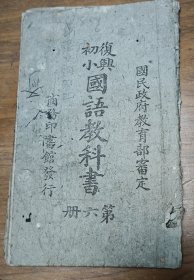 國民政府教育部審定
復興
初小
國語教科書
第六册
商務印書館發行